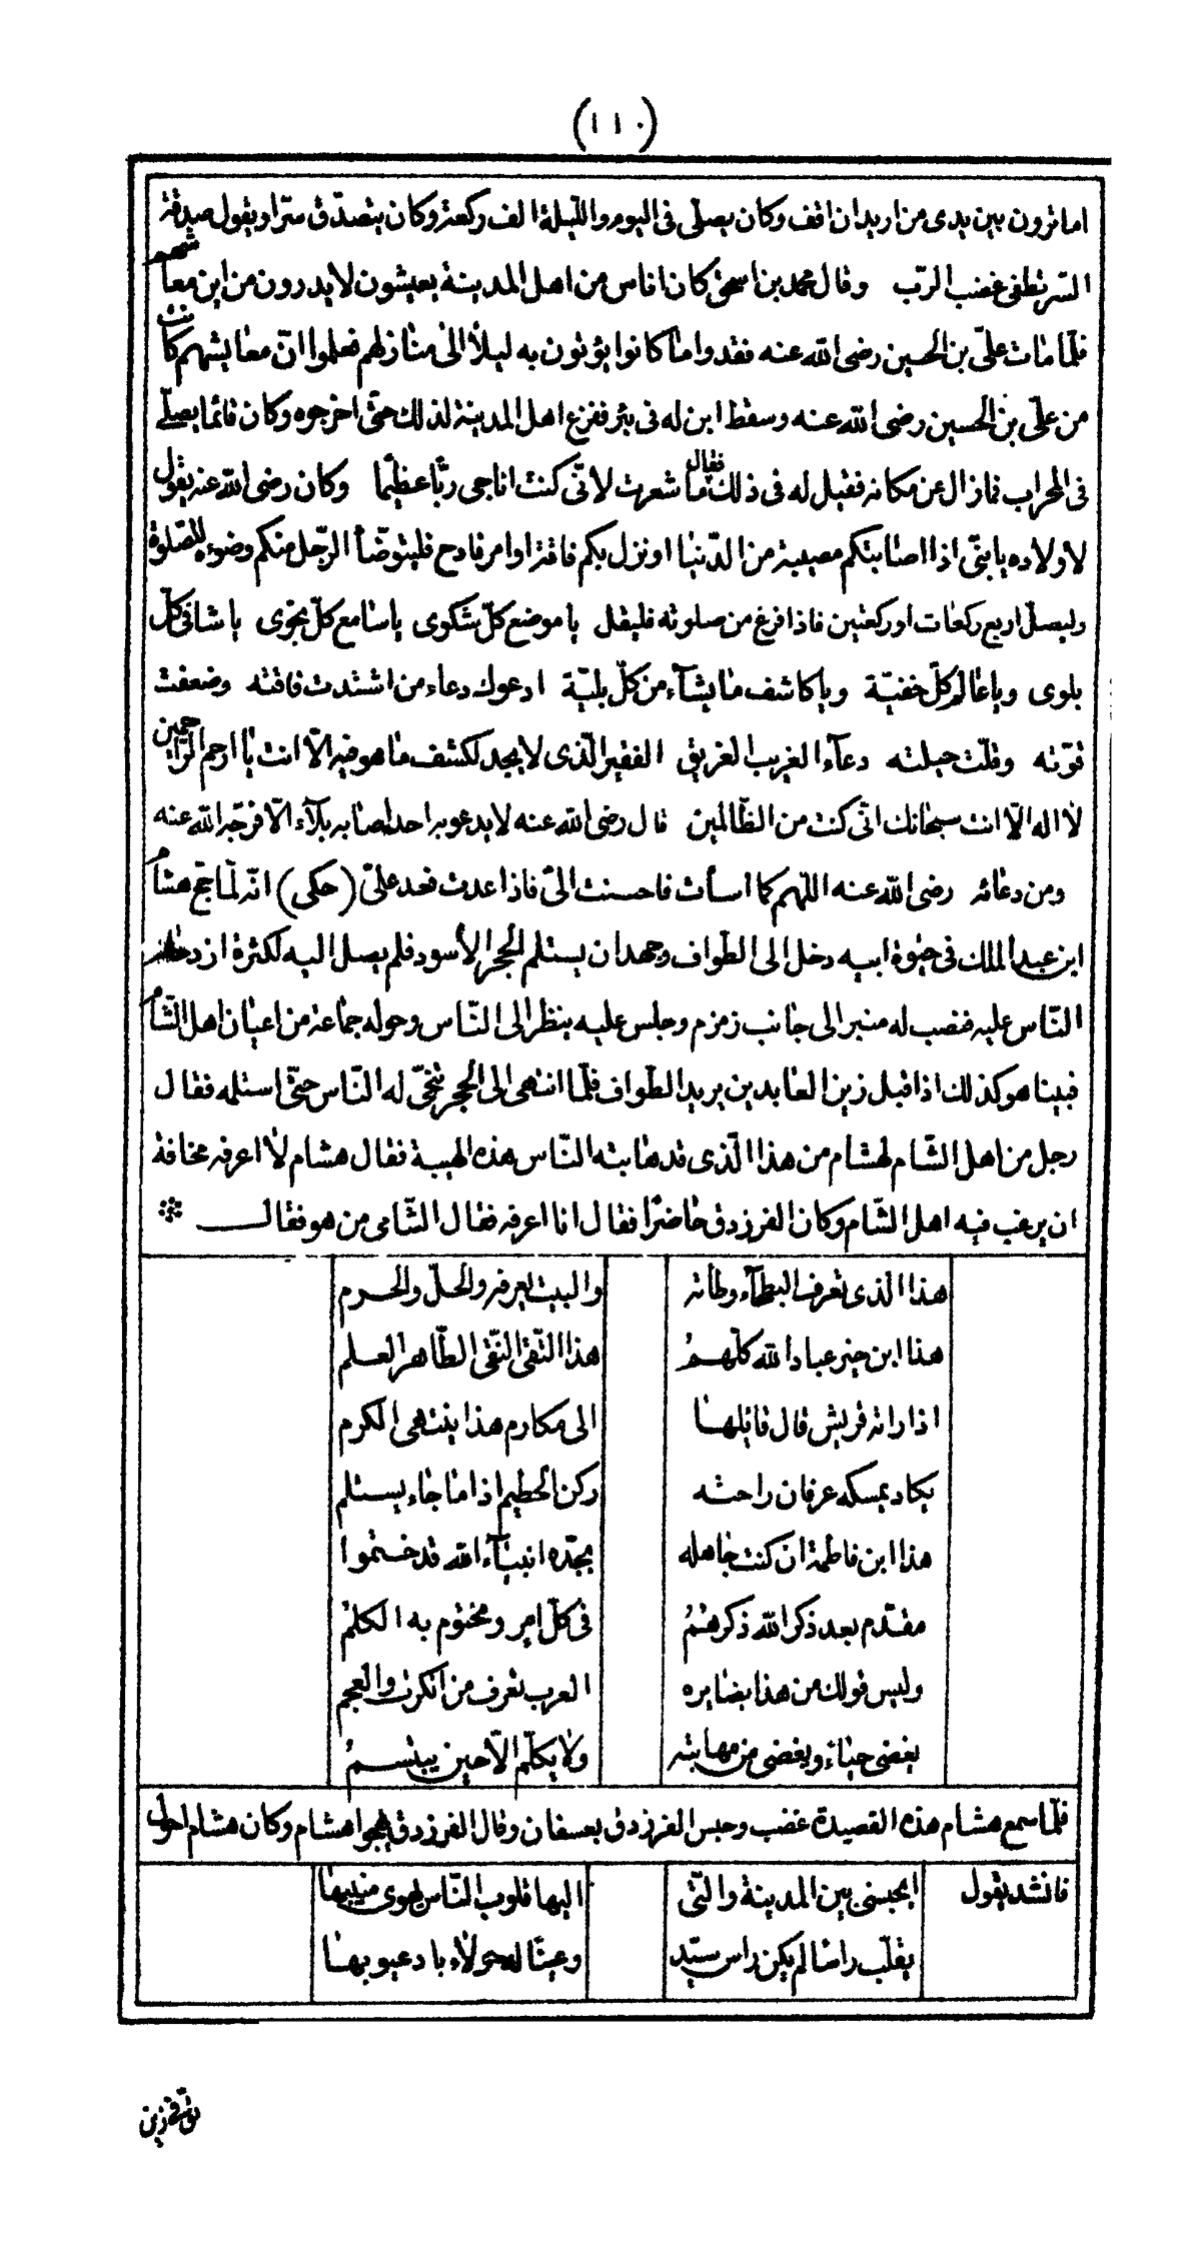 (١١٠)
اما ترون بين يدى من اريد ان اقف وكان يصلى فى اليوم والليلة الف ركعة وكان يتصدّق سرّا ويقول صدقة
السّر تطفى غضب الرّب وقال محمد بن اسحق كان اناس من اهل المدينة يعيشون لا يدرون من اين معاشهم
فلمّا مات علىّ بن الحسين رضى الله عنه فقدوا ما كانوا يؤتون به ليلاً الى منازلهم فعلموا انّ معايشهم كانت
من علىّ بن الحسين رضى الله عنه وسقط ابن له فى بئر ففزع اهل المدينة لذلك حتّى اخرجوه وكان قائما يصلّى
فى المحراب فما زال عن مكانه فقيل له فى ذلك فقال ما شعرت لانّى كنت اناجى ربّا عظيمًا وكان رضى الله عنه يقول
لاولاده يا بنىّ اذا اصابتكم مصيبة من الدّنيا او نزل بكم فاقة او امر فادح فليتوضّأ الرّجل منكم وضوءه للصّلوة
وليصلّ اربع ركعات او ركعتين فاذا فرغ من صلوته فليقل يا موضع كلّ شكوى يا سامع كلّ نجوى يا شافى كلّ
بلوى ويا عالم كلّ خفيّة ويا كاشف ما يشآء من كلّ بليّة ادعوك دعاء من اشتدت فاقته وضعفت
قوّته وقلّت حيلته دعآء الغريب الغريق الفقير الّذى لا يجد لكشف ما هو فيه الّا انت يا ارحم الرّاحمين
لا اله الّا انت سبحانك انّى كنت من الظّالمين قال رضى الله عنه لا يدعو به احد اصابه بلآء الّا فرّجه الله عنه
ومن دعائه رضى الله عنه اللهم كما اسأت فاحسنت الىّ فاذا عدت فعد علىّ (حكى) انّه لمّا حجّ هشام
ابن عبد الملك فى حيوة ابيه دخل الى الطّواف وجهد ان يستلم الحجر الأسود فلم يصل اليه لكثرة ازدحام
النّاس عليه فنصب له منبر الى جانب زمزم وجلس عليه ينظر الى النّاس وحوله جماعة من اعيان اهل الشّام
فبينا هو كذلك اذ اقبل زين العابدين يريد الطّواف فلمّا انتهى الى الحجر تنحّى له النّاس حتّى استلمه فقال
رجل من اهل الشّام لهشام من هذا الّذى قد هابته النّاس هذه الهيبة فقال هشام لا اعرفه مخافة
ان يرغب فيه اهل الشّام وكان الفرزدق حاضرًا فقال انا اعرفه فقال الشّامى من هو فقال
هذا الذى تعرف البطحآء وطأته والبيت يعرفه والحلّ والحرم
هذا ابن خير عباد الله كلّهمُ هذا التّقى النّقى الطّاهر العلم
اذا راته قريش قال قايلها الى مكارم هذا ينتهى الكرم
يكاد يمسكه عرفان راحته ركن الحطيم اذا ما جاء يستلم
هذا ابن فاطمة ان كنت جاهله بجدّه انبيآء الله قد ختموا
مقدّم بعد ذكر الله ذكرهمُ فى كلّ امر ومختوم به الكلم
وليس قولك من هذا بضايره العرب تعرف من انكرت والعجم
يغضى حياء ويغضى من مهابته ولا يكلّم الّا حين يبتسمُ
فلمّا سمع هشام هذه القصيدة غضب وحبس الفرزدق بعسفان وقال الفرزدق يهجوا هشام وكان هشام احول
فانشد يقول ايحبسنى بين المدينة والّتى اليها قلوب النّاس يهوى منيبها
يقلّب راسًا لم يكن راس سيّد وعينًا له حولاء باد عيوبها